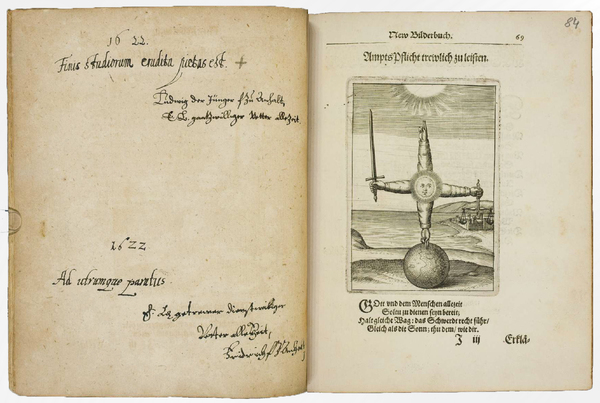 1622
Finis studiorum erudita pietas est. +
Ludwig der Jünger f. zu Anhalt,
E. L. gantzwilliger Vetter allezeit.
1622
Ad utrumque paratus
E. L. getrewer dienstwilliger
Vetter allezeit,
Friedrich f. z. Anhalt
84
New Bilderbuch. 69
Ampts Pflicht trewlich zu leisten.
GOtt vnd dem Menschen allezeit
Solen zu dienen seyn bereit;
Halt gleiche Wag: das Schwerdt recht führ/
Gleich als die Sonn; thu dem/ wie dir.
J iij Erklä-